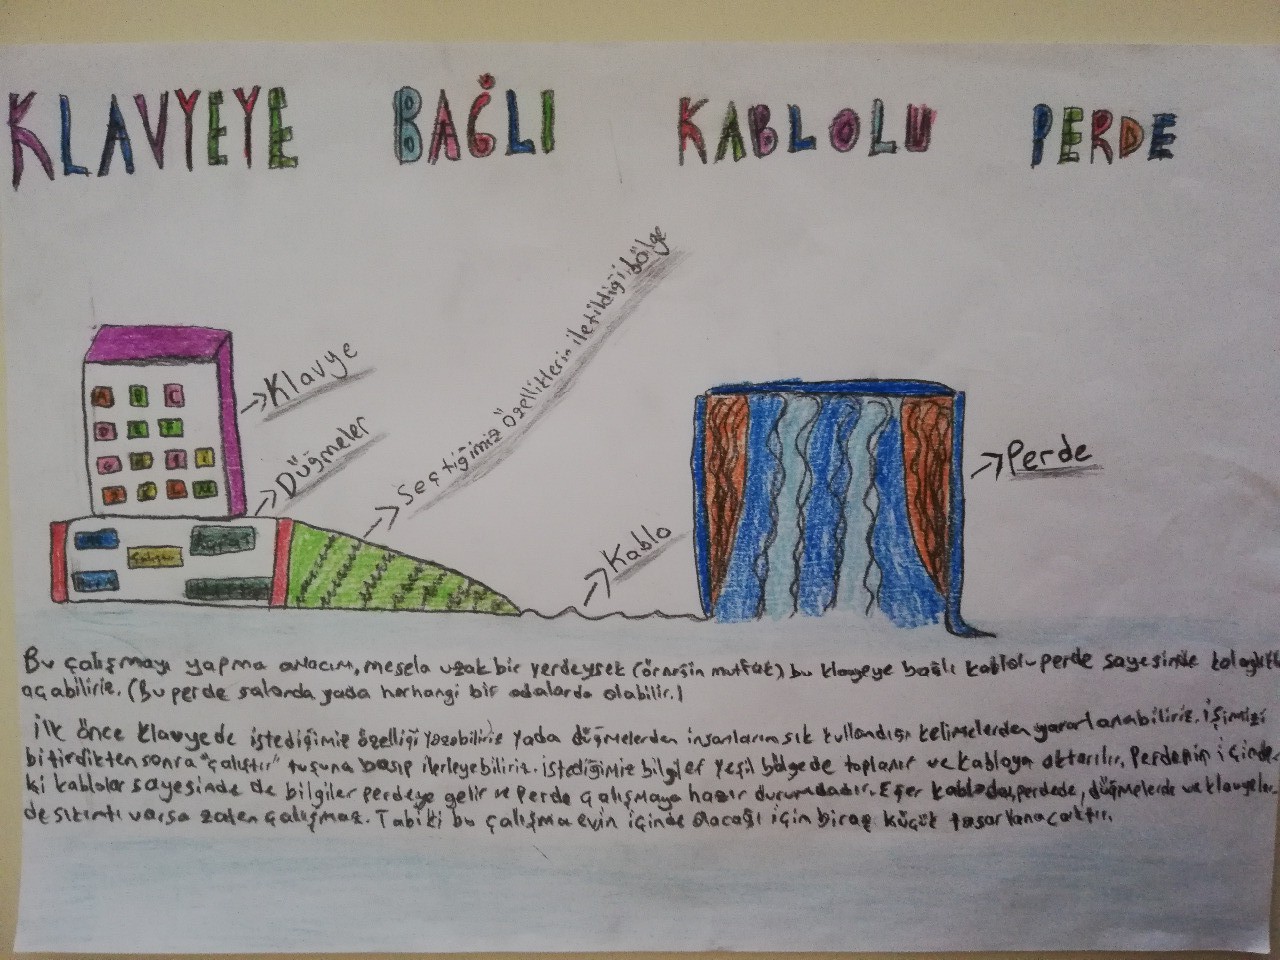 KLAVYEYE BAĞLI KABLOLU PERDE
Klavye
Düğmeler
Seçtiğimiz özelliklerin iletildiği bölge
Kablo
Perde
A B C
D E F
G H I İ
J K L M
Çalıştır
Bu çalışmayı yapma amacım, mesela uzak bir yerdeysek (örneğin mutfak) bu klavyeye bağlı kablolu perde sayesinde
açabiliriz. (Bu perde salonda yada herhangi bir odalarda olabilir.)
İlk önce klavyede istediğimiz özelliği yazabiliriz yada düğmelerden insanların sık kullandığı kelimelerden yararlanabiliriz. İşimizi
bitirdikten sonra "çalıştır" tuşuna basıp ilerleyebiliriz. İstediğimiz bilgiler yeşil bölgede toplanır ve kabloya aktarılır. Perdenin içinde-
ki kablolar sayesinde de bilgiler perdeye gelir ve perde çalışmaya hazır durumdadır. Eğer kabloda, perdede, düğmelerde ve klavyeler-
de sıkıntı varsa zaten çalışmaz. Tabiki bu çalışma evin içinde olacağı için biraz küçük tasarlanacaktır.